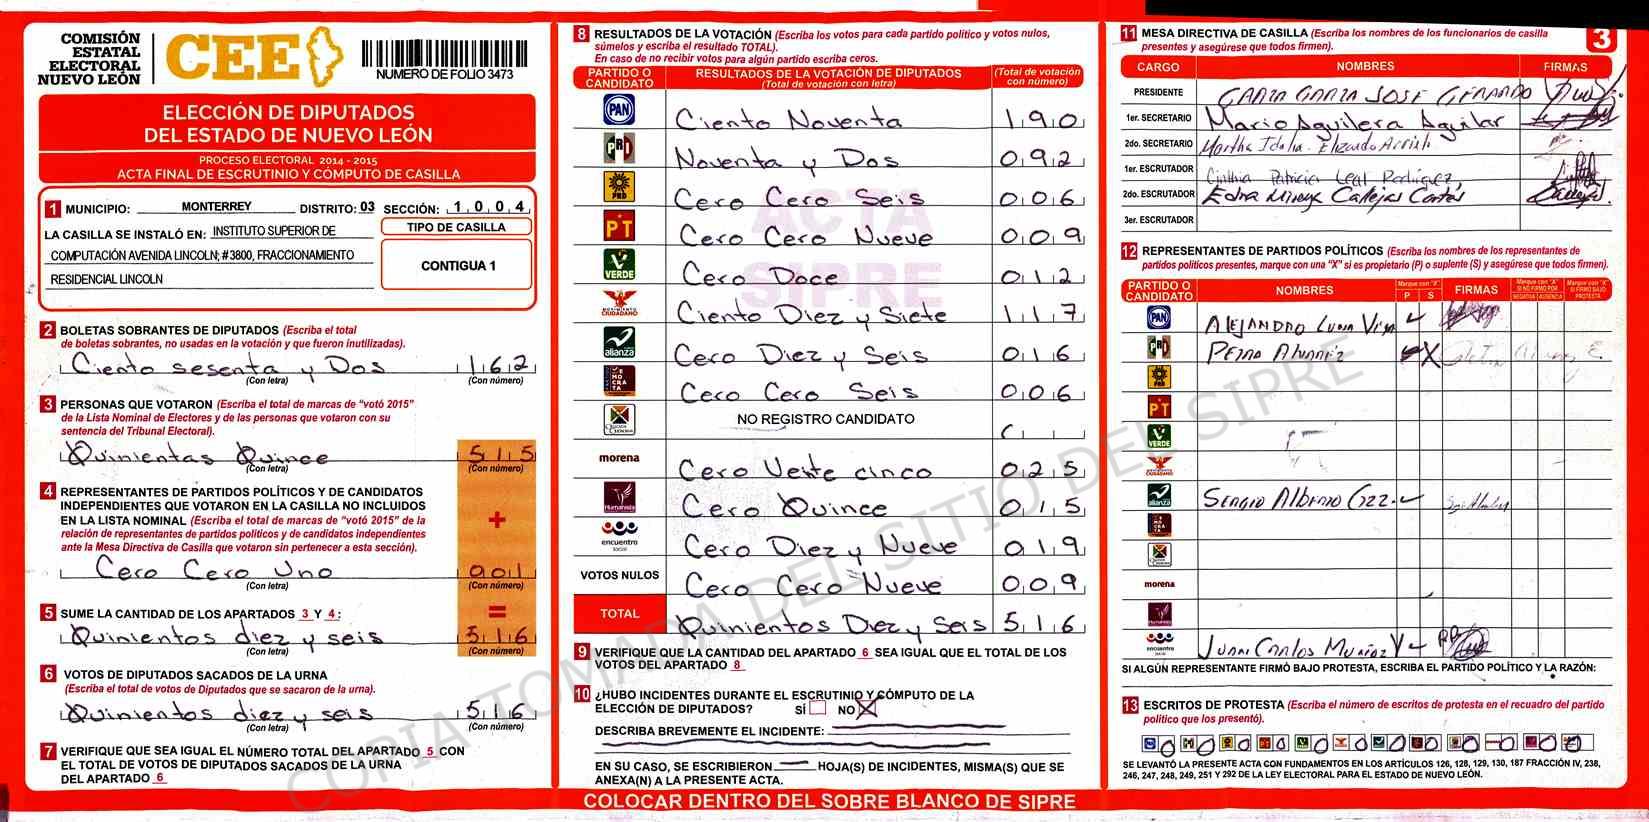 COMISIÓN
ESTATAL
ELECTORAL
NUEVO LEÓN
CEE
NUMERO DE FOLIO 3473
ELECCIÓN DE DIPUTADOS
DEL ESTADO DE NUEVO LEÓN
PROCESO ELECTORAL 2014 - 2015
ACTA FINAL DE ESCRUTINIO Y CÓMPUTO DE CASILLA
1 MUNICIPIO: MONTERREY DISTRITO: 03 SECCIÓN: 1 0 0 4
LA CASILLA SE INSTALÓ EN: INSTITUTO SUPERIOR DE
COMPUTACIÓN AVENIDA LINCOLN; #3800, FRACCIONAMIENTO
RESIDENCIAL LINCOLN
TIPO DE CASILLA
CONTIGUA 1
2 BOLETAS SOBRANTES DE DIPUTADOS (Escriba el total
de boletas sobrantes, no usadas en la votación y que fueron inutilizadas).
Ciento sesenta y Dos 1 6 2
(Con letra) (Con número)
3 PERSONAS QUE VOTARON (Escriba el total de marcas de "votó 2015"
de la Lista Nominal de Electores y de las personas que votaron con su
sentencia del Tribunal Electoral).
Quinientas Quince 5 1 5
(Con letra) (Con número)
4 REPRESENTANTES DE PARTIDOS POLÍTICOS Y DE CANDIDATOS
INDEPENDIENTES QUE VOTARON EN LA CASILLA NO INCLUIDOS
EN LA LISTA NOMINAL (Escriba el total de marcas de "votó 2015" de la
relación de representantes de partidos políticos y de candidatos independientes
ante la Mesa Directiva de Casilla que votaron sin pertenecer a esta sección).
+
Cero Cero Uno 0 0 1
(Con letra) (Con número)
=
5 SUME LA CANTIDAD DE LOS APARTADOS 3 Y 4:
Quinientos diez y seis 5 1 6
(Con letra) (Con número)
6 VOTOS DE DIPUTADOS SACADOS DE LA URNA
(Escriba el total de votos de Diputados que se sacaron de la urna).
Quinientos diez y seis 5 1 6
(Con letra) (Con número)
7 VERIFIQUE QUE SEA IGUAL EL NÚMERO TOTAL DEL APARTADO 5 CON
EL TOTAL DE VOTOS DE DIPUTADOS SACADOS DE LA URNA
DEL APARTADO 6
8 RESULTADOS DE LA VOTACIÓN (Escriba los votos para cada partido político y votos nulos,
súmelos y escriba el resultado TOTAL).
En caso de no recibir votos para algún partido escriba ceros.
PARTIDO O CANDIDATO RESULTADOS DE LA VOTACIÓN DE DIPUTADOS (Total de votación con letra) (Total de votación con número)
PAN Ciento Noventa 1 9 0
PRI Noventa y Dos 0 9 2
PRD Cero Cero Seis 0 0 6
PT Cero Cero Nueve 0 0 9
VERDE Cero Doce 0 1 2
MOVIMIENTO CIUDADANO Ciento Diez y Siete 1 1 7
alianza Cero Diez y Seis 0 1 6
Cero Cero Seis 0 0 6
NO REGISTRO CANDIDATO
morena Cero Veite cinco 0 2 5
Humanista Cero Quince 0 1 5
encuentro social Cero Diez y Nueve 0 1 9
VOTOS NULOS Cero Cero Nueve 0 0 9
TOTAL Quinientos Diez y Seis 5 1 6
ACTA
SIPRE
9 VERIFIQUE QUE LA CANTIDAD DEL APARTADO 6 SEA IGUAL QUE EL TOTAL DE LOS
VOTOS DEL APARTADO 8
10 ¿HUBO INCIDENTES DURANTE EL ESCRUTINIO Y CÓMPUTO DE LA
ELECCIÓN DE DIPUTADOS? SÍ NO X
DESCRIBA BREVEMENTE EL INCIDENTE:
EN SU CASO, SE ESCRIBIERON HOJA(S) DE INCIDENTES, MISMA(S) QUE SE
ANEXA(N) A LA PRESENTE ACTA.
COLOCAR DENTRO DEL SOBRE BLANCO DE SIPRE
11 MESA DIRECTIVA DE CASILLA (Escriba los nombres de los funcionarios de casilla
presentes y asegúrese que todos firmen).
3
CARGO NOMBRES FIRMAS
PRESIDENTE GARZA GARZA JOSE GERARDO
1er. SECRETARIO Mario Aguilera Aguilar
2do. SECRETARIO Martha Idalia Elizondo
1er. ESCRUTADOR Cinthia Patricia Leal Rodriguez
2do. ESCRUTADOR Edna Callejas Cortés
3er. ESCRUTADOR
12 REPRESENTANTES DE PARTIDOS POLÍTICOS (Escriba los nombres de los representantes de
partidos políticos presentes, marque con una "X" si es propietario (P) o suplente (S) y asegúrese que todos firmen).
PARTIDO O CANDIDATO NOMBRES Marque con "X" P S FIRMAS Marque con "X" SI NO FIRMÓ POR NEGATIVA AUSENCIA Marque con "X" SI FIRMÓ BAJO PROTESTA
PAN ALEJANDRO LUNA
PRI PETRA Alvarez X
PRD
PT
VERDE
MOVIMIENTO CIUDADANO
alianza SERGIO ALBERTO
morena
encuentro social JUAN CARLOS MUÑOZ
SI ALGÚN REPRESENTANTE FIRMÓ BAJO PROTESTA, ESCRIBA EL PARTIDO POLÍTICO Y LA RAZÓN:
13 ESCRITOS DE PROTESTA (Escriba el número de escritos de protesta en el recuadro del partido
político que los presentó).
0 0 0 0 0 0 0 0 0 0 0 0
SE LEVANTÓ LA PRESENTE ACTA CON FUNDAMENTOS EN LOS ARTÍCULOS 126, 128, 129, 130, 187 FRACCIÓN IV, 238,
246, 247, 248, 249, 251 Y 292 DE LA LEY ELECTORAL PARA EL ESTADO DE NUEVO LEÓN.
COPIA TOMADA DEL SITIO DEL SIPRE